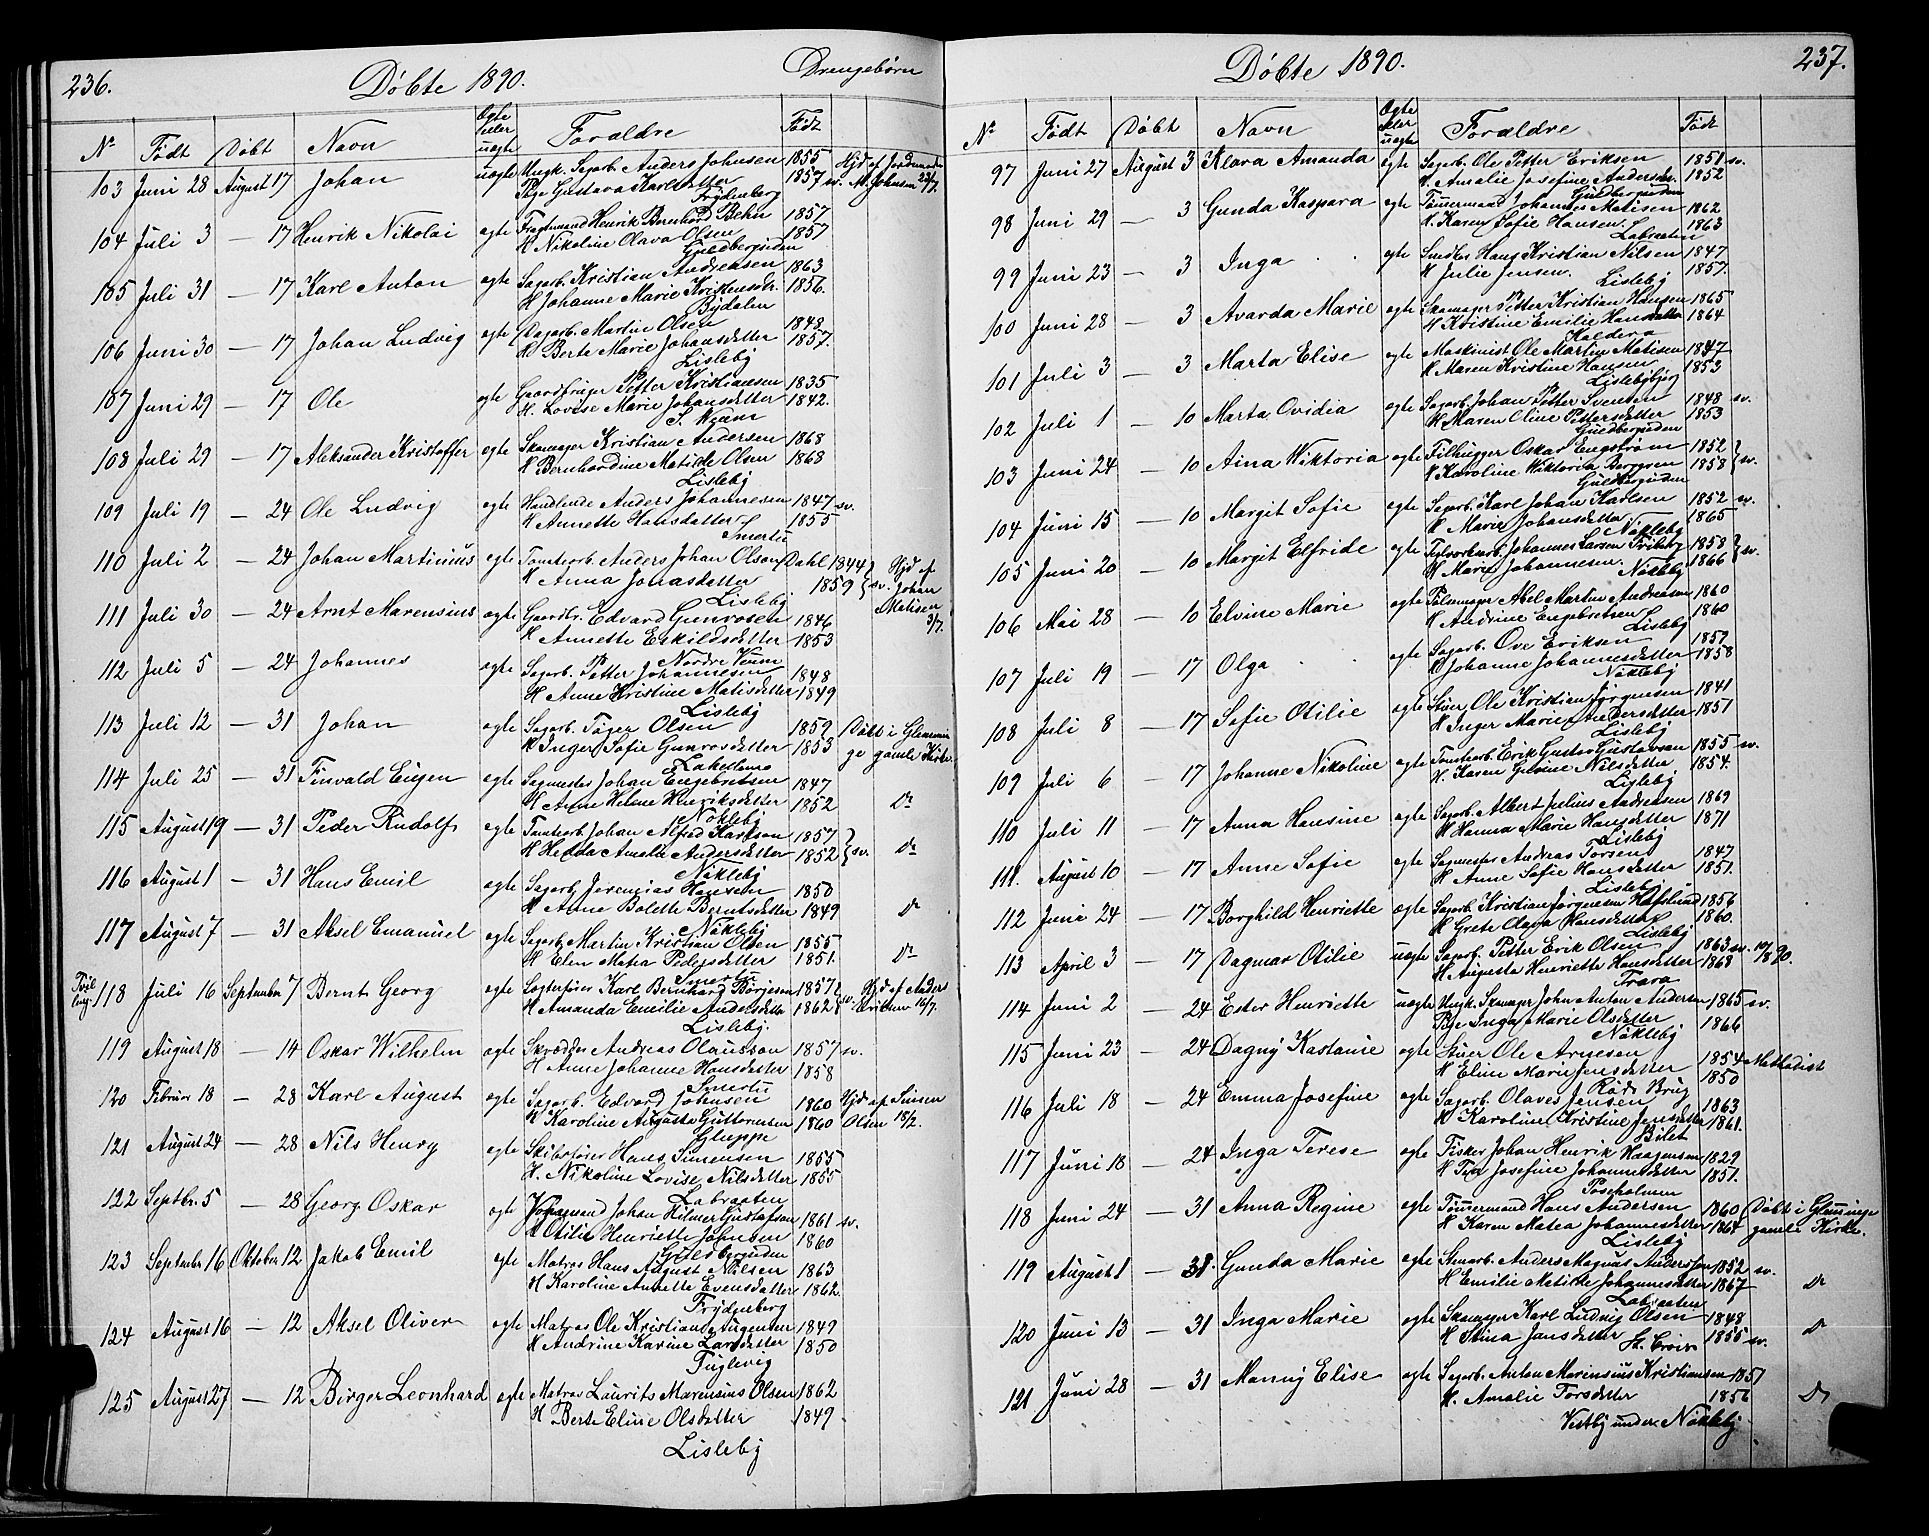 236.
Döbte 1890.
Drengebörn
Nr Födt Döbt Navn Ægte eller uægte Foraldre Födt
103 Juni 28 August 17 Johan uagte Ungk. Sagarb. Anders Johnsen 1855 Hjd af Jordmoder
Pige Gustava Karlsdatter 1857 sv. M. Johnsen 22/7
Frydenberg
104 Juli 3 — 17 Henrik Nikolai egte Fragtmand Henrik Bernhard Behn 1857
H Nikoline Olava Olsen 1857
Guldbergsiden
105 Juli 31 — 17 Karl Anton egte Sagarb. Kristian Andreasen 1863
H Johanne Marie Kristensdtr. 1856.
Bydalen
106 Juni 30 — 17 Johan Ludvig egte Sagarb. Martin Olsen 1848
H Berte Marie Johansdatter 1857.
Lisleby
107 Juni 29 — 17 Ole egte Gaardbruger Petter Kristiansen 1835
H. Lovise Marie Johansdatter 1842.
S. Weum
108 Juli 29 — 17 Aleksander Kristoffer egte Skomager Kristian Andersen 1868
H Bernhardine Matilde Olsen 1868
Lisleby
109 Juli 19 — 24 Ole Ludvig egte Handlende Anders Johannesen 1847 sv.
H Annette Hansdatter 1855
Smertu
110 Juli 2 — 24 Johan Martinius egte Tomtearb. Anders Johan Olson Dahl 1844 Hjd af
H Anna Jonasdatter 1859 sv. Johan
Lisleby Matisen 3/7.
111 Juli 30 — 24 Arnt Marensius egte Gaardbr. Edvard Gunrosen 1846
H Annette Eskildsdatter 1853
Nordre Veum
112 Juli 5 — 24 Johannes egte Sagarb. Petter Johannesen 1848
H Anne Kristine Matisdatter 1849
Lisleby
113 Juli 12 — 31 Johan egte Sagarb. Tøger Olsen 1859 Döbt i Glemmin
H Inger Sofie Gunrosdatter 1853 ge gamle Kirke.
114 Juli 25 — 31 Finvald Eugen egte Sagmester Johan Engebretsen 1847
H Anne Helene Henriksdatter 1852 Do
Nökleby
115 August 19 — 31 Peder Rudolf egte Tomtearb. Johan Alfred Karlson 1857
H Hedda Amalie Andersdatter 1852 sv. Do
Nökleby
116 August 1 — 31 Hans Emil egte Sagarb. Jeremias Hansen 1850
H Anne Bolette Berntsdatter 1849 Do
Nökleby
117 August 7 — 31 Aksel Emanuel egte Sagarb. Martin Kristian Olsen 1855
H Elen Matea Pedersdatter 1851. Do
Smertu
118 Juli 16 September 7 Bernt Georg egte Logterförer Karl Bernhard Börjesen 1857 Hjd af Anders
H Amanda Emilie Andersdatter 1862 sv. Eriksen 16/7.
Lisleby.
119 August 18 — 14 Oskar Wilhelm egte Skrædder Andreas Olausson 1857 sv.
H Anne Johanne Hansdatter 1858
Smertu
120 Februar 18 — 28 Karl August egte Sagarb. Edvard Johnsen 1860 Hjd af Simen
H Karoline Augusta Guttormsen 1860 Olsen 18/2.
Gluppe
121 August 24 — 28 Nils Henry egte Skibsförer Hans Simensen 1855
H. Nikoline Lovise Nilsdatter 1855
Labraaten
122 Septbr. 5 — 28 Georg Oskar egte Johan Hilmer Gustafson 1861 sv.
H Otilie Henriette Johnsen 1860
Guldbergsiden
123 September 16 Oktober 12 Jakob Emil egte Matros Hans August Nilsen 1863
H Karoline Annette Evensdatter 1862.
Frydenberg
124 August 16 — 12 Aksel Oliver egte Matros Ole Kristian Augensen 1849
H Andrine Karine Larsdatter 1850
Fuglevig
125 August 27 — 12 Birger Leonhard egte Matros Laurits Marensius Olsen 1862
H Berte Eline Olsdatter 1849.
Lisleby
Döbte 1890.
237.
Nr Födt Döbt Navn Ægte eller uægte Foraldre Födt
97 Juni 27 August 3 Klara Amanda egte Sagarb. Ole Petter Eriksen 1851 sv.
H. Amalie Josefine Andersdtr. 1852
Guldbergsiden
98 Juni 29 — 3 Gunda Kaspara egte Tömmermand Johannes Matisen 1862
H. Karen Sofie Hansen. 1863
Labraaten
99 Juni 23 — 3 Inga egte Snedker Hans Kristian Nilsen 1847
H Julie Jensen. 1857.
Lisleby
100 Juni 28 — 3 Avarda Marie egte Skomager Petter Kristian Hansen 1865
H Kristine Emilie Hansdatter 1864
Kaldera
101 Juli 3 — 3 Marta Elise egte Maskinist Ole Martin Matisen 1847
H Maren Kristine Hansen 1853
Lislebybjerg
102 Juli 1 — 10 Marta Ovidia egte Sagarb. Johan Petter Svensen 1848 sv.
H Maren Oline Pettersdatter 1853
Guldbergsiden
103 Juni 24 — 10 Aina Wiktoria egte Filhugger Oskar Engström 1852
H Karoline Wiktoria Berggren 1858 sv.
Guldbergsiden
104 Juni 15 — 10 Margit Sofie egte Sagarb. Karl Johan Karlsen 1852 sv.
H Marie Johansdatter 1865
Nökleby
105 Juni 20 — 10 Margit Elfride egte Teglværksarb. Johannes Larsen Friberg 1858
H Marie Johannesen. 1866 sv.
Nökleby
106 Mai 28 — 10 Elvine Marie egte Pølsemager Abel Martin Andreasen 1860
H Andrine Engebretsen 1860
Lisleby
107 Juli 19 — 17 Olga egte Sagarb. Ove Eriksen 1857
H Johanne Johannesdatter 1858
Nökleby
108 Juli 8 — 17 Sofie Otilie egte Stuer Ole Kristian Jörgensen 1841
H Inger Marie Andersdatter 1851
Lisleby
109 Juli 6 — 17 Johanne Nikoline egte Tomtearb. Erik Gustav Gustavsen 1855 sv.
H. Karen Gurine Nilsdatter 1854.
Lisleby
110 Juli 11 — 17 Anna Hansine egte Sagarb. Albert Julius Andreasen 1869
H Hanna Marie Hansdatter 1871
Lisleby
111. August 10 — 17 Anne Sofie egte Sagmester Andreas Torsen 1847
H Anne Sofie Hansdatter 1851.
Lisleby
112 Juni 24 — 17 Borghild Henriette ægte Sagarb. Kristian Jörgensen Hafslund 1856
H Grete Olava Hansdatter 1860.
Lisleby
113 April 3 — 17 Dagmar Otilie uegte Sagarb. Petter Erik Olsen 1863 sv. 19/8 90.
H Augusta Henriette Hansdatter 1868
Trara
114 Juni 2 — 24 Ester Henriette uægte Ungk. Skomager John Anton Andersen 1865 sv.
Pige Inga Marie Olsdatter 1866
Nökleby
115 Juni 23 — 24 Dagny Kastanie egte Stuer Ole Arnesen 1854 Methodist
H Eline Marie Jensdatter 1850
Röds Brug
116 Juli 18 — 24 Emma Josefine egte Sagarb. Olaves Jensen 1863
H Karoline Kristine Jensdatter 1861.
Bilet
117 Juni 18 — 24 Inga Terese egte Fisker Johan Henrik Haagensen 1829
H Tea Josefine Johannesdatter 1851.
Poseholmen
118 Juni 24 — 31 Anna Regine egte Tömmermand Hans Andersen 1860 Döbt i Glemminge
H Karen Matea Johannesdatter 1864 gamle Kirke.
Lisleby
119 August 1 — 31 Gunda Marie egte Stenarb. Anders Magnus Anderson 1852 sv.
H Emilie Matilde Johannesdatter 1867 Do
Labraaten
120 Juni 13 — 31 Inga Marie egte Skomager Karl Ludvig Olsen 1848
H Stina Jansdatter 1855 sv. Do
St. Croix
121 Juni 28 — 31 Manny Elise egte Sagarb. Anton Marensius Kristiansen 1857
H. Amalie Torsdatter 1856 Do
Vestby under Nökleby